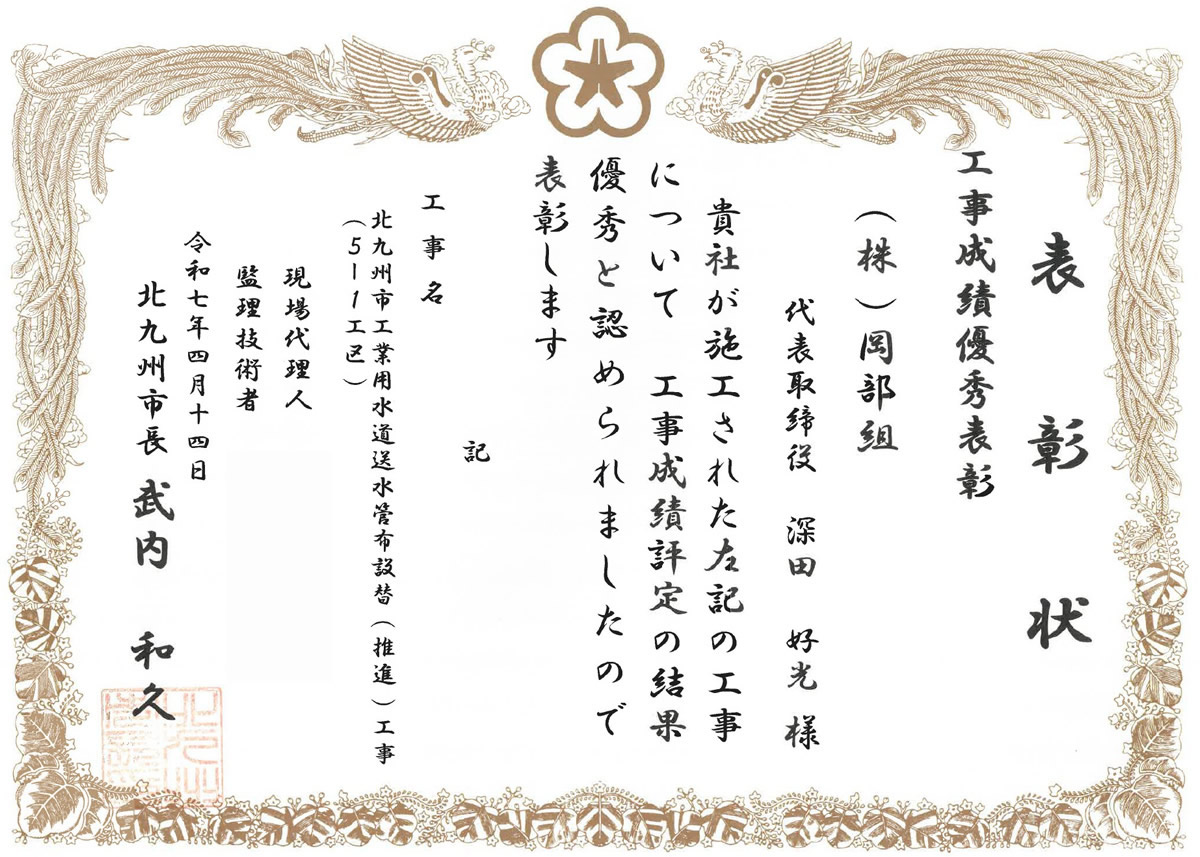 表彰状
工事成績優秀表彰
(株)岡部組
代表取締役 深田 好光 様
貴社が施工された左記の工事
について 工事成績評定の結果
優秀と認められましたので
表彰します
記
工事名
北九州市工業用水道送水管布設替(推進)工事
(5-1工区)
現場代理人
監理技術者
令和七年四月十四日
北九州市長 武内 和久